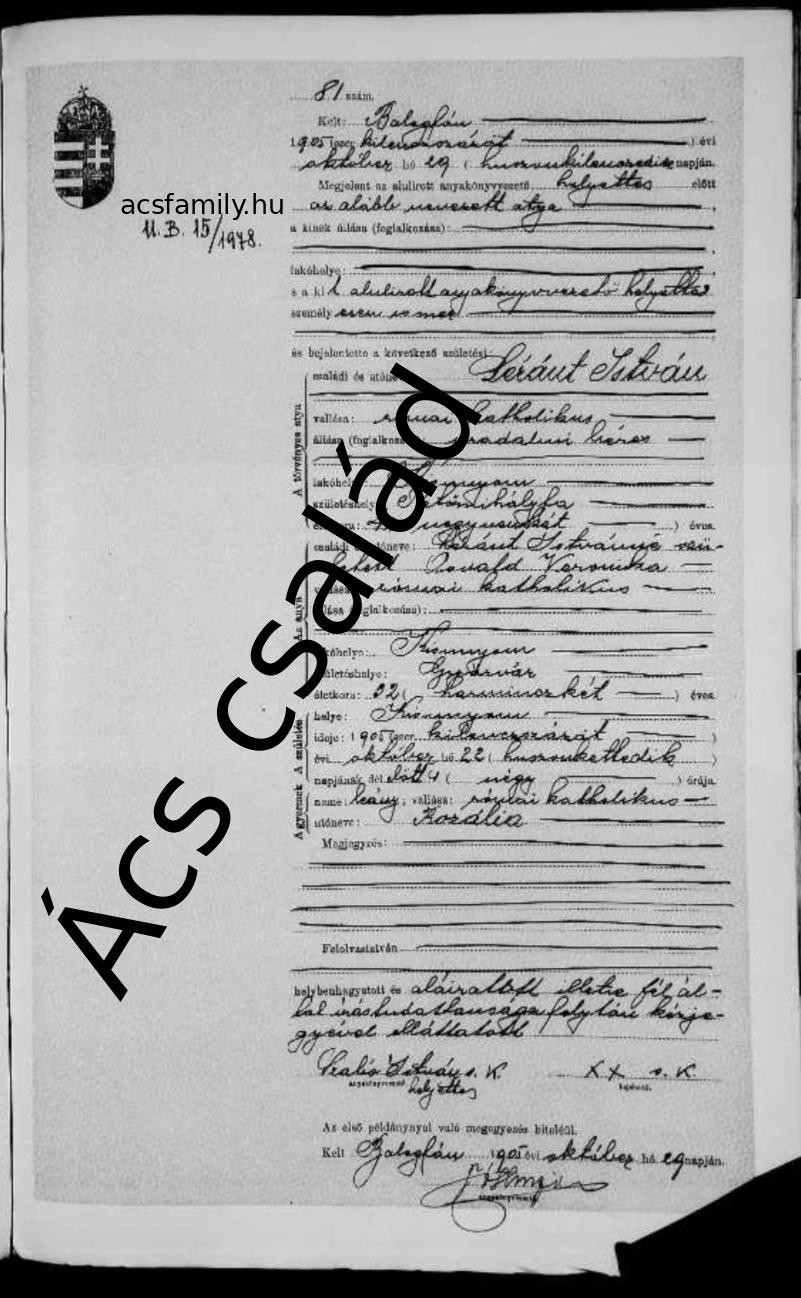 81 szám.
Kelt: Balogfán
1905 (ezer kilenczszázöt) évi
október hó 29 (huszonkilenczedik napján.
Megjelent az alulirott anyakönyvvezető helyettes előtt
az alább nevezett atya
a kinek állása (foglalkozása):
acsfamily.hu
U. B. 15/1978.
lakóhelye:
s a kit alulirott anyakönyvvezető helyettes
személyesen ismer
és bejelentette a következő születést:
A törvényes atya
családi és utóneve: Léránt István
vallása: római katholikus
állása (foglalkozása): uradalmi béres
lakóhelye:
születéshelye:
negyvenkét ) éves.
Az anya
családi és utóneve: Léránt Istvánné szü-
letett Osvald Veronika
vallása: római katholikus
állása (foglalkozása):
lakóhelye:
születéshelye: Győrvár
életkora: 32 (harminczkét ) éves
A születés
helye:
ideje: 1905 (ezer kilenczszázöt )
évi október hó 22 (huszonkettedik )
napjának dél előtt 4 ( négy ) órája.
A gyermek
neme: leány; vallása: római katholikus
utóneve: Rozália
Megjegyzés:
Felolvastatván
helybenhagyatott és aláiratott illetve fél ál-
tal irástudatlansága folytán kézje-
gyével elláttatott
Szabó István s. k. XX s. k.
anyakönyvvezető helyettes bejelentő.
Az első példánynyal való megegyezés hiteléül.
Kelt Balogfán 1905 évi október hó 29 napján.
anyakönyvvezető
Ács család